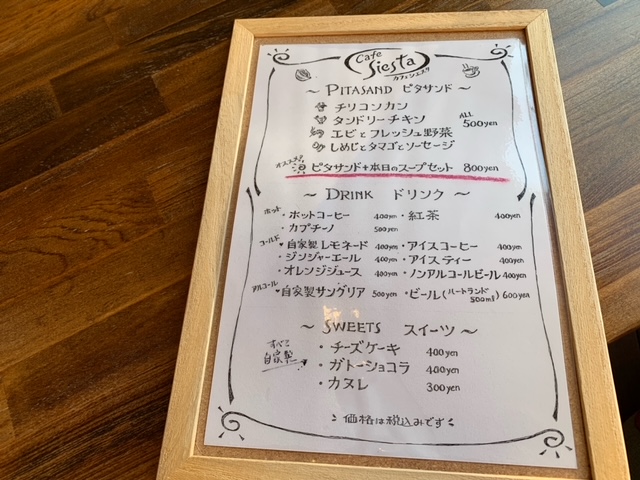 Cafe
Siesta
カフェシエスタ
～ PITASAND ピタサンド ～
チリコンカン
タンドリーチキン
エビとフレッシュ野菜
しめじとタマゴとソーセージ
ALL
500yen
オススメ!
ピタサンド+本日のスープセット 800yen
～ DRINK ドリンク ～
ホット
・ホットコーヒー 400yen ・紅茶 400yen
・カプチーノ 500yen
コールド
♥自家製レモネード 400yen ・アイスコーヒー 400yen
・ジンジャーエール 400yen ・アイスティー 400yen
・オレンジジュース 400yen ・ノンアルコールビール 400yen
アルコール
♥自家製サングリア 500yen ・ビール(ハートランド 500ml) 600yen
～ SWEETS スイーツ ～
すべて
自家製
・チーズケーキ 400yen
・ガトーショコラ 400yen
・カヌレ 300yen
価格は税込みです